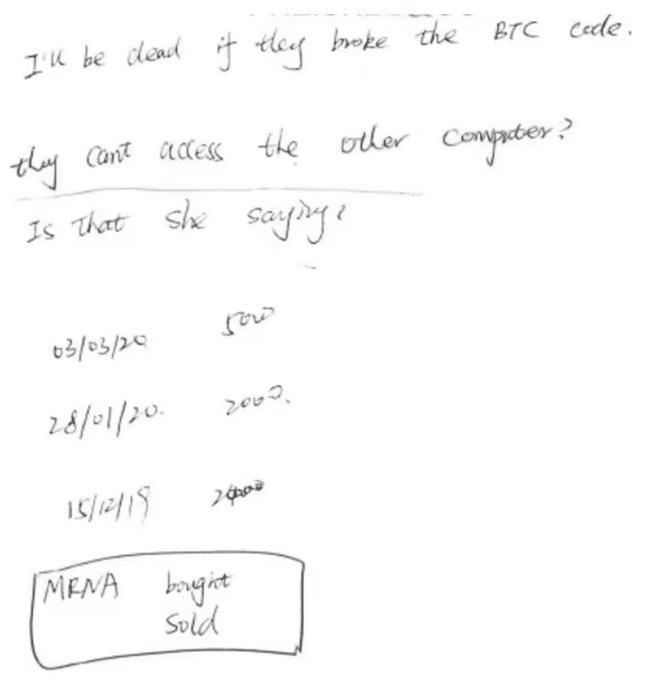 I'll be dead if they broke the BTC code.
they can't access the other computer?
Is that she saying?
03/03/20 5000
28/01/20. 2000.
15/12/19
MRNA bought
sold